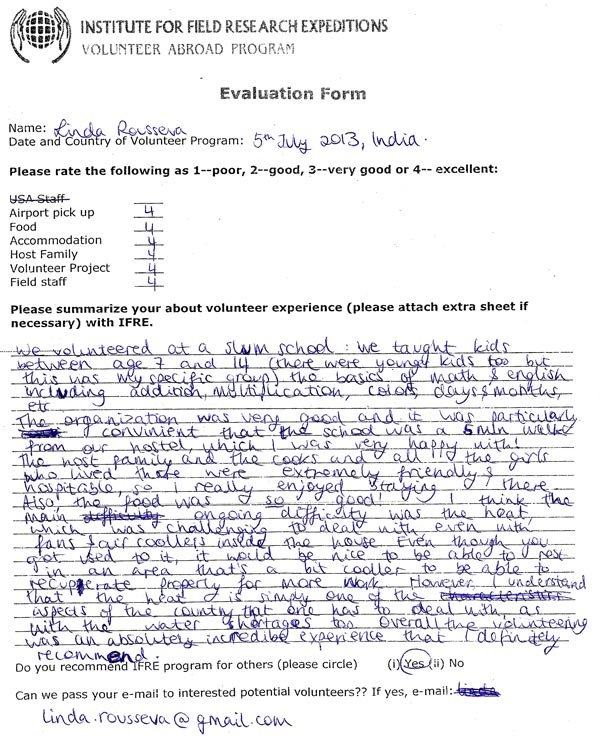 INSTITUTE FOR FIELD RESEARCH EXPEDITIONS
VOLUNTEER ABROAD PROGRAM
Evaluation Form
Name: Linda Rousseva
Date and Country of Volunteer Program: 5th July 2013, India.
Please rate the following as 1--poor, 2--good, 3--very good or 4-- excellent:
USA Staff
Airport pick up 4
Food 4
Accommodation 4
Host Family 4
Volunteer Project 4
Field staff 4
Please summarize your about volunteer experience (please attach extra sheet if
necessary) with IFRE.
We volunteered at a slum school : we taught kids
between age 7 and 14 (there were young kids too but
this was my specific group) the basics of math & english
including addition, multiplication, colors, days & months,
etc
The organization was very good and it was particularly
convinient that the school was a 5 min walk
from our hostel, which I was very happy with!
The host family and the cooks and all the girls
who lived there were extremely friendly &
hospitable, so I really enjoyed staying there.
Also the food was so good! I think the
main difficulty ongoing difficulty was the heat
which was challenging to deal with even with
fans & air coollers inside the house Even though you
get used to it, it would be nice to be able to rest
in an area that's a bit cooler to be able to
recuperate properly for more work. However I understand
that the heat is simply one of the characteristics
aspects of the country that one has to deal with, as
with the water shortages too. Overall the volunteering
was an absolutely incredibe experience that I definitely
recommend.
Do you recommend IFRE program for others (please circle) (i) Yes (ii) No
Can we pass your e-mail to interested potential volunteers?? If yes, e-mail: linda
linda.rousseva@gmail.com